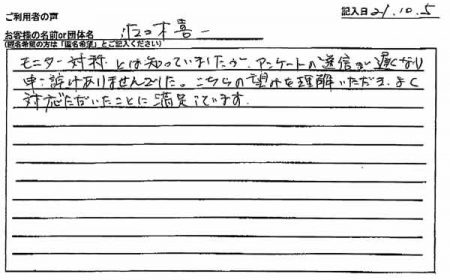 ご利用者の声
記入日 21.10.5
お客様の名前or団体名
(匿名希望の方は「匿名希望」とご記入ください)
モニター対称とは知っていましたが、アンケートの送信が遅くなり
申し訳ありませんでした。こちらの望みを理解いただき、よく
対応いただいたことに満足しています。